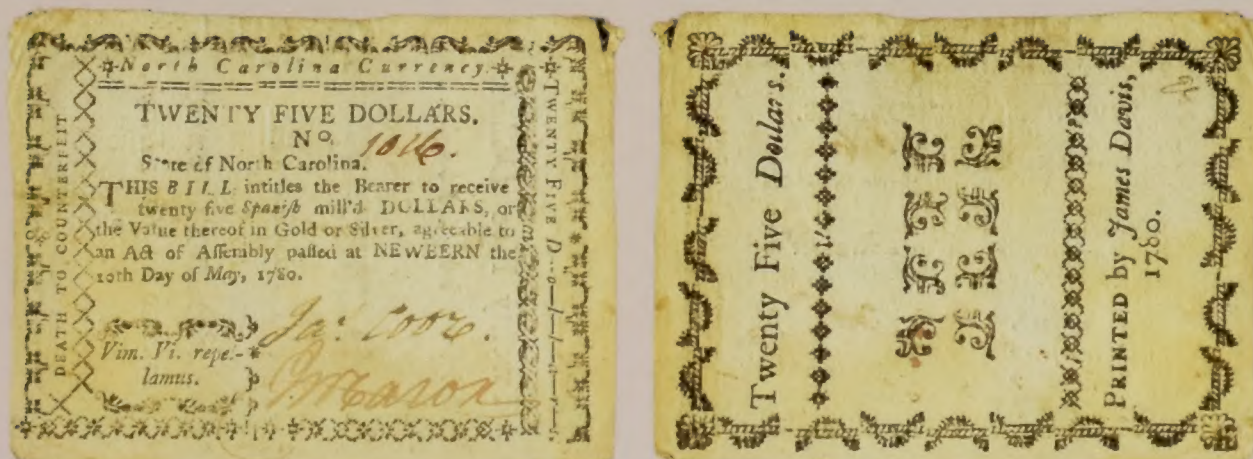 North Carolina Currency.
TWENTY FIVE DOLLARS.
No. 1016.
State of North Carolina.
THIS BILL intitles the Bearer to receive
twenty five Spaniſh mill'd DOLLARS, or
the Value thereof in Gold or Silver, agreeable to
an Act of Aſſembly paſſed at NEWBERN the
10th Day of May, 1780.
Vim. Vi. repel-
lamus.
Jas. Coor.
DEATH TO COUNTERFEIT
TWENTY FIVE D--o--l--l--a--r--
Twenty Five Dollars.
PRINTED by James Davis,
1780.